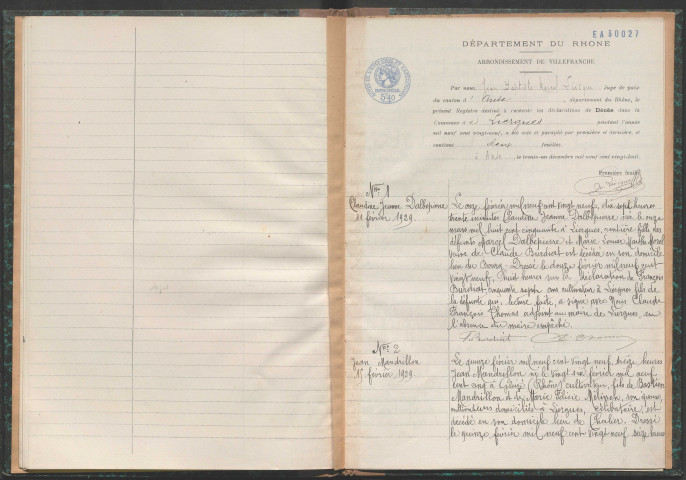 EA30027
DÉPARTEMENT DU RHÔNE
ARRONDISSEMENT DE VILLEFRANCHE
Par nous, Jean juge de paix
du canton d' Anse, département du Rhône, le
présent Registre destiné à recevoir les déclarations de Décès dans la
Commune d Liergues pendant l'année
mil neuf cent vingt-neuf, a été coté et paraphé par première et dernière, et
contient deux feuilles.
à Anse, le trente-un décembre mil neuf cent vingt-huit.
Premier feuillet
N° 1
Claudine Jeanne Dalbepierre
11 février 1929.
Le onze février mil neuf cent vingt neuf, dix sept heures
trente minutes Claudine Jeanne Dalbepierre née le onze
mars mil huit cent cinquante à Liergues, rentière fille des
défunts Marcel Dalbepierre et Marie Louise Marthe Morel
veuve de Claude Burdiat est décédée en son domicile
lieu du Bourg. Dressé le douze février mil neuf cent
vingt neuf, huit heures sur la déclaration de François
Burdiat, cinquante ans cultivateur à Liergues fils de
la défunte qui, lecture faite, a signé avec Nous Claude
François Thomas adjoint au maire de Liergues, en
l'absence du maire empêché.
F Burdiat
N° 2
Jean Mandrillon
15 février 1929.
Le quinze février mil neuf cent vingt neuf, treize heures
Jean Mandrillon né le vingt février mil neuf
cent cinq à (Rhône) cultivateur, fils de
Mandrillon et de Marie Félicie son épouse,
domiciliés à Liergues, célibataire, est
décédé en son domicile lieu de Dressé
le quinze février mil neuf cent vingt neuf seize heures